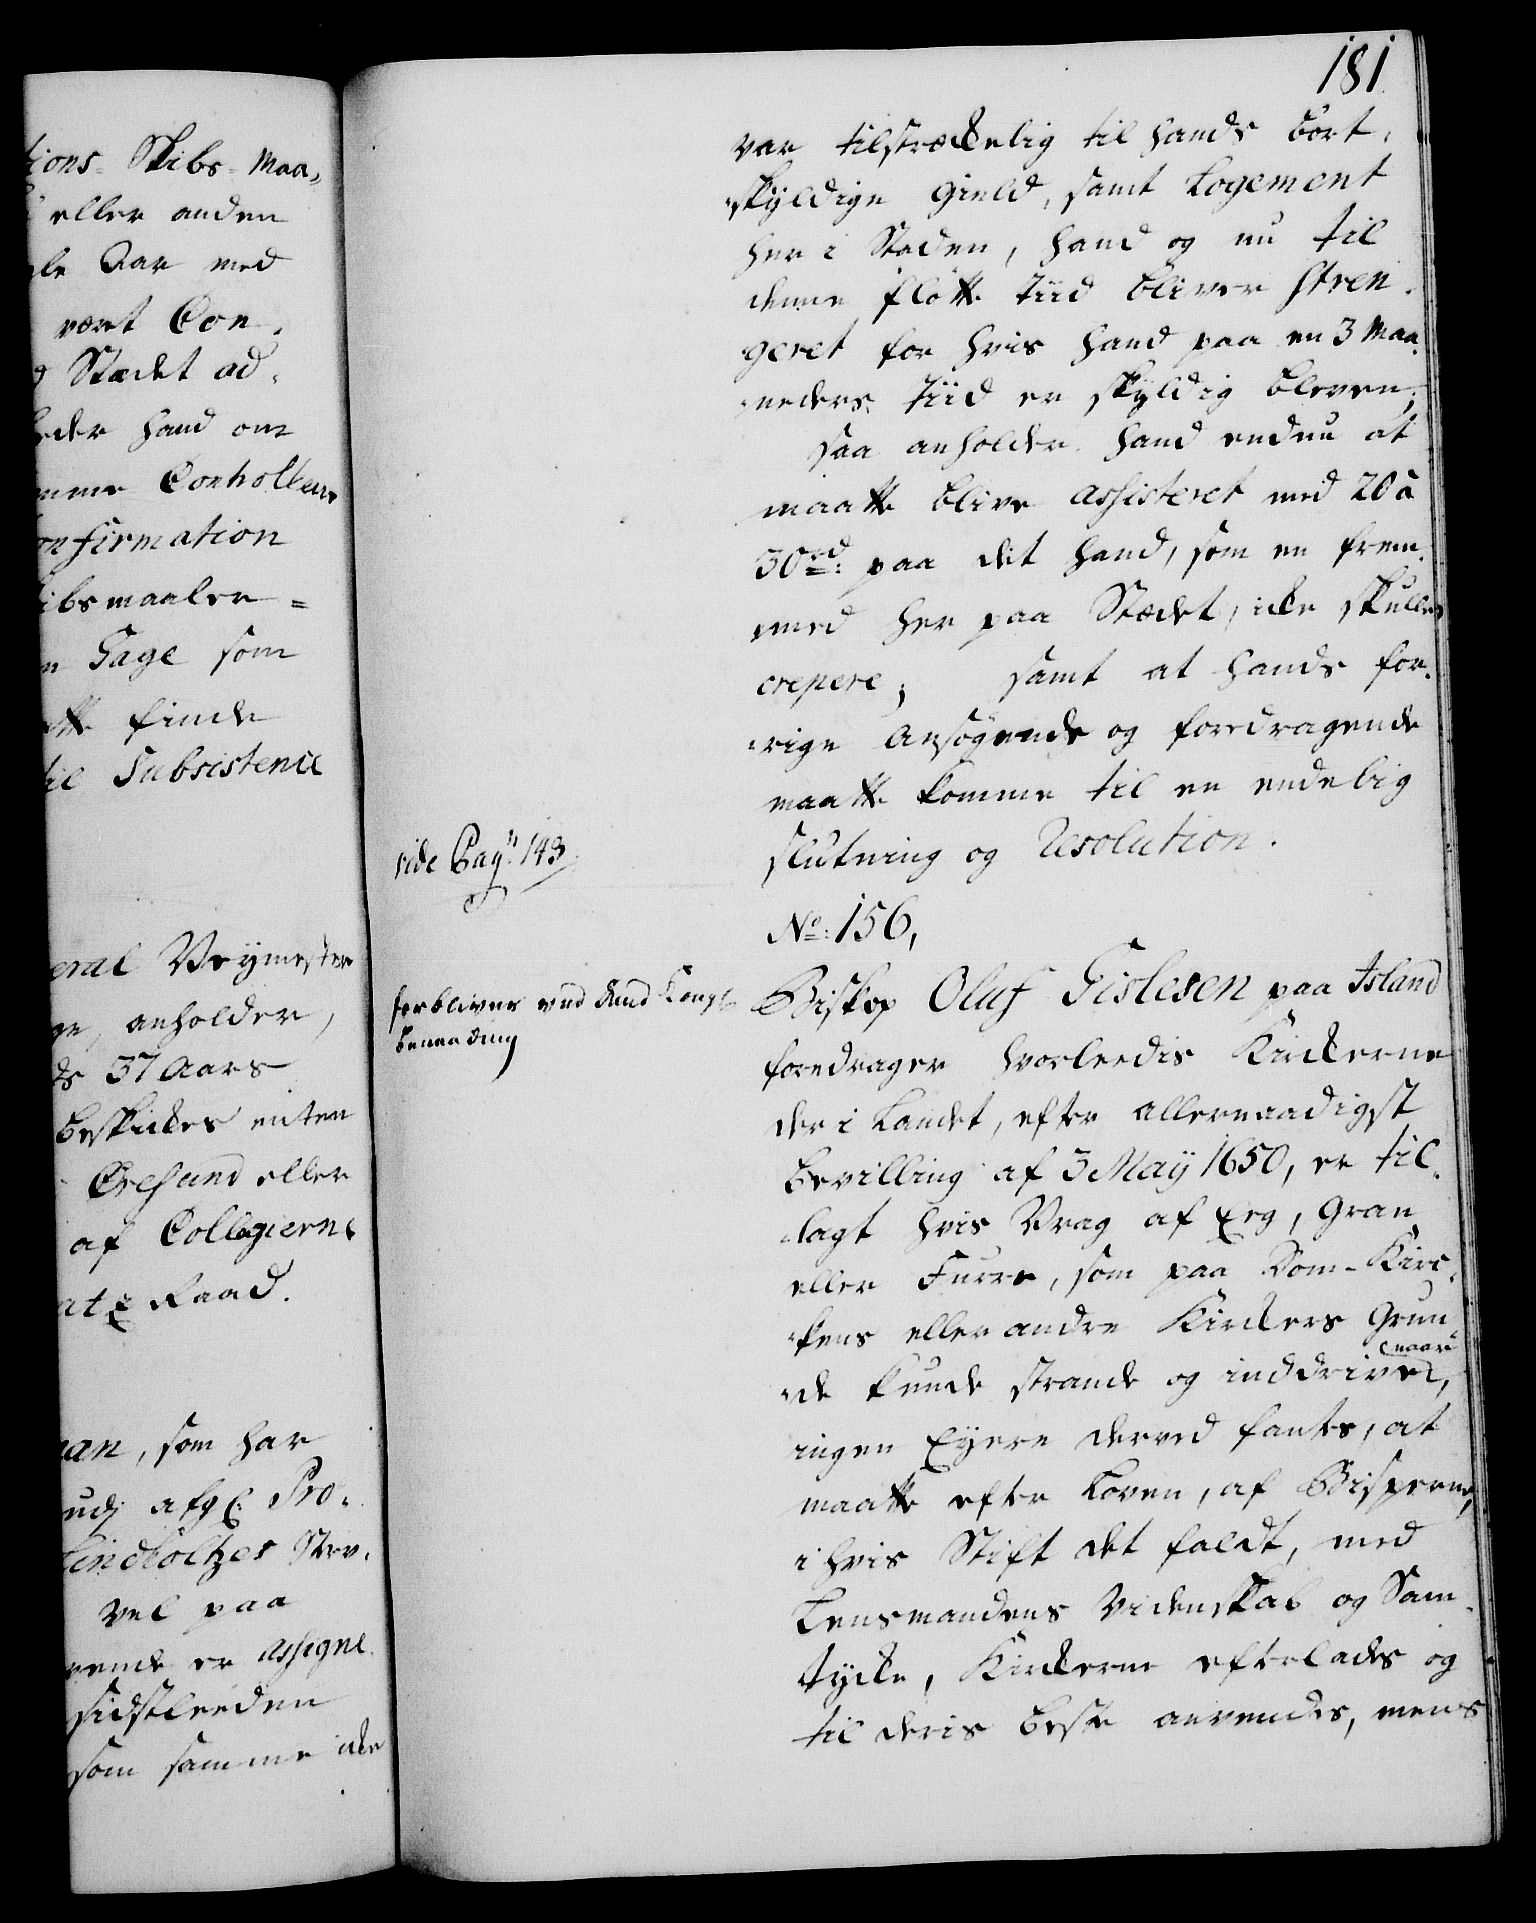 tions Skibs-Maa-
eller anden
le Aar med
vært Con-
Stædet ad-
eder hand om
mme Contholleurs
onfirmation
ibsmaaler =
n Gage som
tte finde
til Subsistence
eral Veymester
ge, anholder,
ds 37 Aars
beskickes enten
Øresund eller
af Collegierne
Raad.
an, som har
udj afg: Pro-
Lindholtzes Sterv-
vel paa
vende er assigne-
sidstleeden
som samme icke
181.
var tilstrækkelig til hands bort-
skyldige Gield, samt Logement
her i Staden, hand og nu til
denne flötte Tiid bliver stren-
geret for hvis hand paa en 3 Maa-
neders Tiid er skyldig bleven;
saa anholder hand endnu at
maatte blive assisteret med 20 à
30 rd: paa det hand, som en frem-
med her paa Stædet, icke skulle
crepere; samt at hands for-
rige Ansögende og foredragende
maatte komme til en endelig
slutning og Resolution.
vide Pag: 143
No: 156,
forbliver ved dend Kongl:
benaading
Biskop Oluf Gislesen paa Island
foredrager hvorleedis Kirkerne
der i Landet, efter allernaadigst
bevilling af 3 Maÿ 1650, er til-
lagt hvis Vrag af Eeg, Gran
eller Furre, som paa Dom-Kirc-
kens eller andre Kirckers Grun-
naar
de kunde strande og inddrives,
ingen Eyere derved fantes, at
maatte efter Loven, af Bisperne,
i hvis Stift det faldt, med
Lensmandens Videnskab og Sam-
tycke, Kirckerne efterlades og
til deris beste anvendes, mens